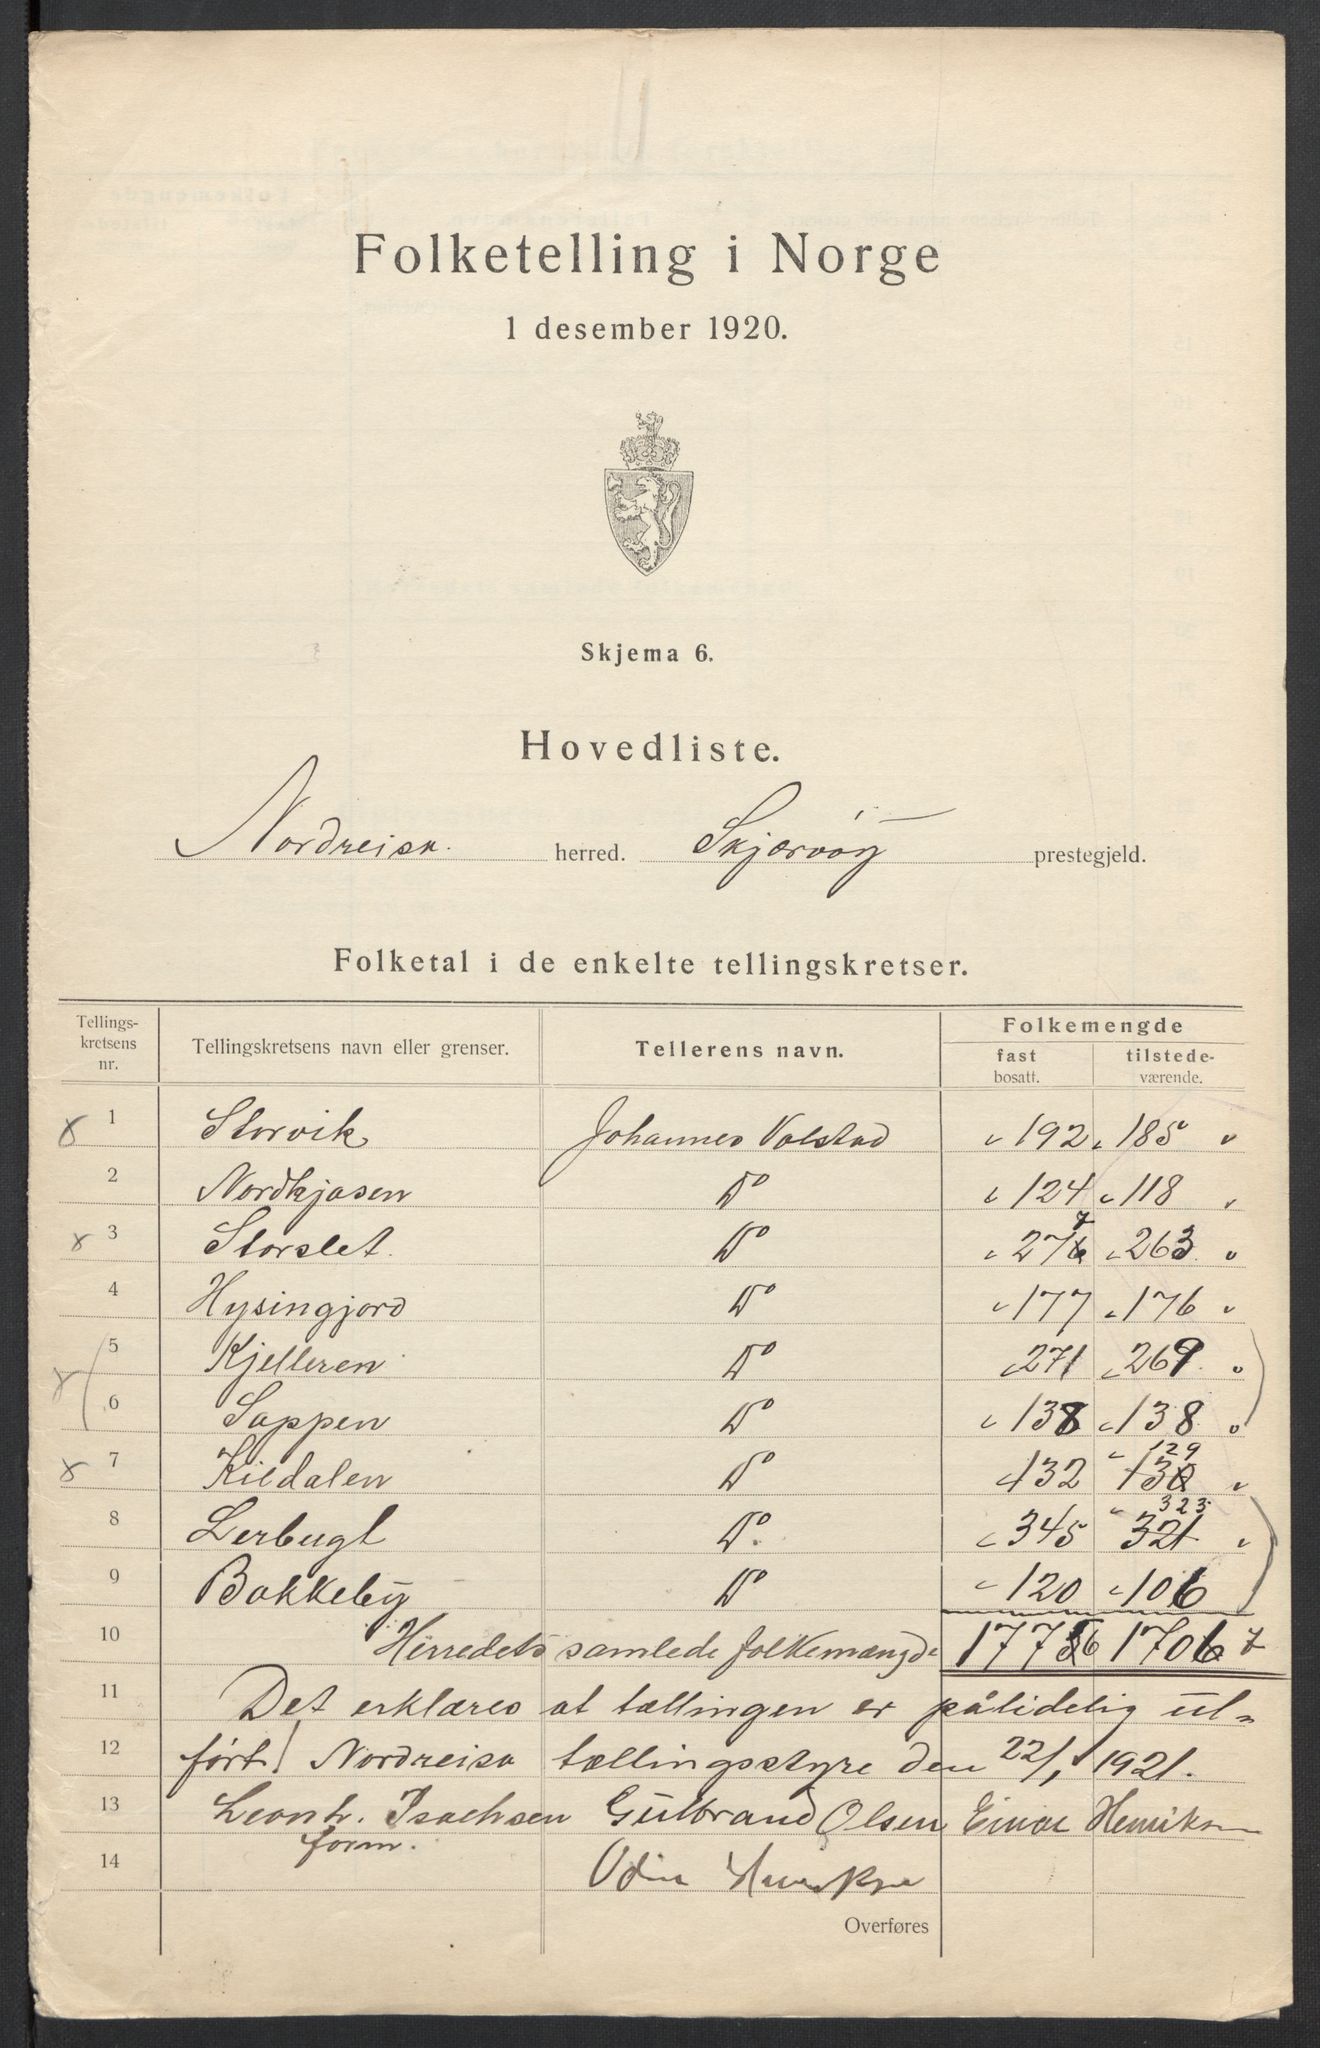 Folketelling i Norge
1 desember 1920.
Skjema 6.
Hovedliste.
Nordreisa. herred. Skjærvöy prestegjeld.
Folketal i de enkelte tellingskretser.
Tellings-
kretsens
nr.
Tellingskretsens navn eller grenser.
Tellerens navn.
Folkemengde
fast
bosatt.
tilstede-
værende.
1 Storvik Johannes Valstad 192 185
2 Nordkjosen Do 124 118
3 Storslet. Do 277 263
4 Hysingjord Do 177 176
5 Kjelleren Do 271 269
6 Sappen Do 138 138
7 Kildalen Do 132 130 129
8 Lerbugt Do. 345 321 323
9 Bakkeby Do 120 106
10 Herredets samlede folkemængde 1776 1706 7
11 Det erklæres at tællingen er pålidelig ut-
12 ført! Nordreisa tællingsstyre den 22/1 1921.
13 Leonh. Isachsen Gulbrand Olsen Einar Henriksen
form.
14 Odin
Overføres